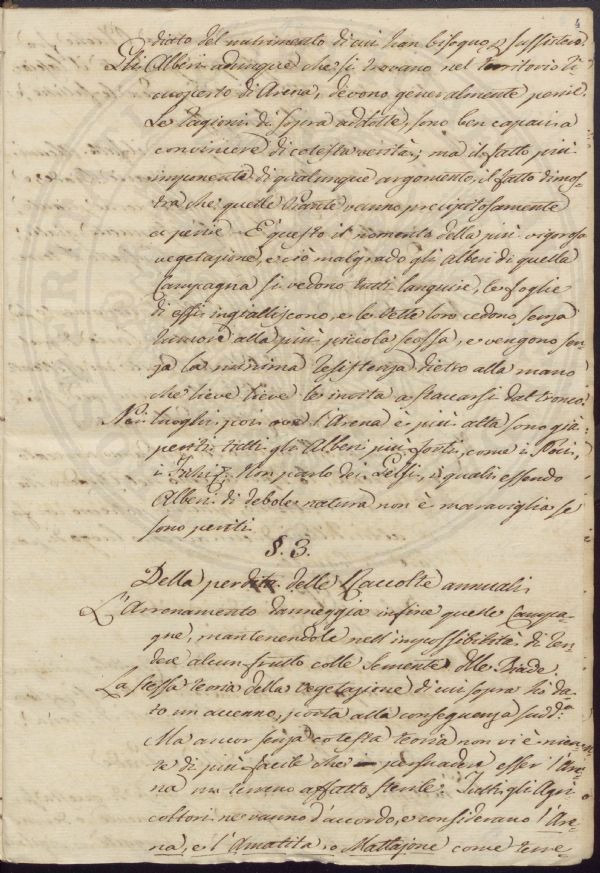 4
dicto del nutrimento di cui han bisogno p sussistere.
Gli Alberi adunque che si trovano nel territorio ri
cuoperto di Arena, devono generalmente perire.
Le ragioni di sopra addotte, sono ben capaci a
convincere di cotesta verità; ma il fatto più
imponente di qualunque argomento, il fatto dimos-
tra che quelle Piante vanno precipitosamente
a perire. È questo il momento della più vigorosa
vegetazione, e ciò malgrado gli Alberi di quella
Campagna si vedono tutti languire, le foglie
di essi ingialliscono, e le vette loro cedono senza
rumore alla più piccola scossa, e vengono sen-
za la minima resistenza dietro alla mano
che lieve lieve le invita a staccarsi dal tronco.
Nei luoghi poi ove l'Arena è più alta sono già
periti tutti gli Alberi più forti, come i Peri,
i Fichi &. Non parlo dei Gelsi, i quali essendo
Alberi di debole natura non è maraviglia se
sono periti.
§. 3.
Della perdita delle Raccolte annuali.
L'Arrenamento danneggia infine queste Campa-
gne, mantenendole nell'impossibilità di ren-
dere alcun frutto colle Semente delle Biade.
La stessa teoria della vegetazione di cui sopra si è da-
to un accenno, porta alla conseguenza sudd.a
Ma ancor senza cotesta teoria non vi è nien-
te di più facile che persuadersi esser l'Are-
na un terreno affatto sterile. Tutti gli Agri
coltori ne vanno d'accordo, e considerano l'Are-
na, e l'Amatita, o Mattajone come terre